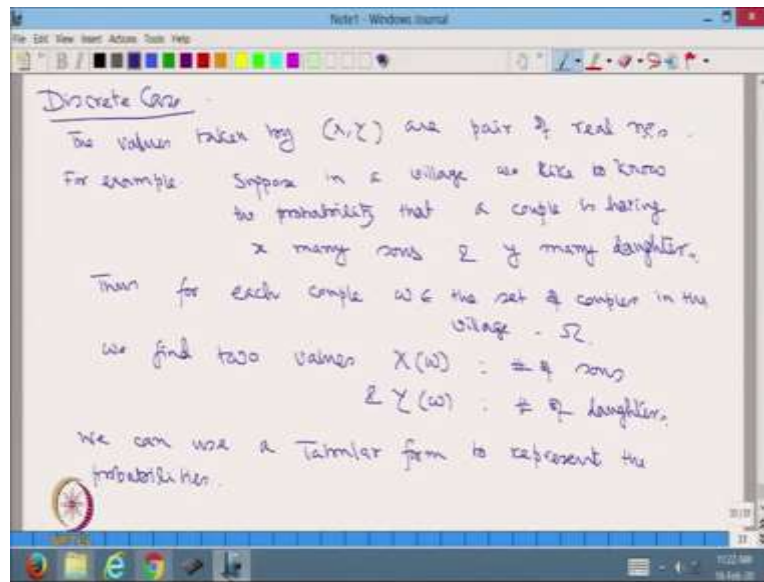 Note1 - Windows Journal
File Edit View Insert Actions Tools Help
Discrete Case
The values taken by (X, Y) are pair of real nos.
For example Suppose in a village we like to know
the probability that a couple is having
x many sons & y many daughter.
Thus for each couple ω ∈ the set of couples in the
village - Ω
we find two values X(ω) : # of sons
& Y(ω) : # of daughters.
We can use a Tabular form to represent the
probabilities.